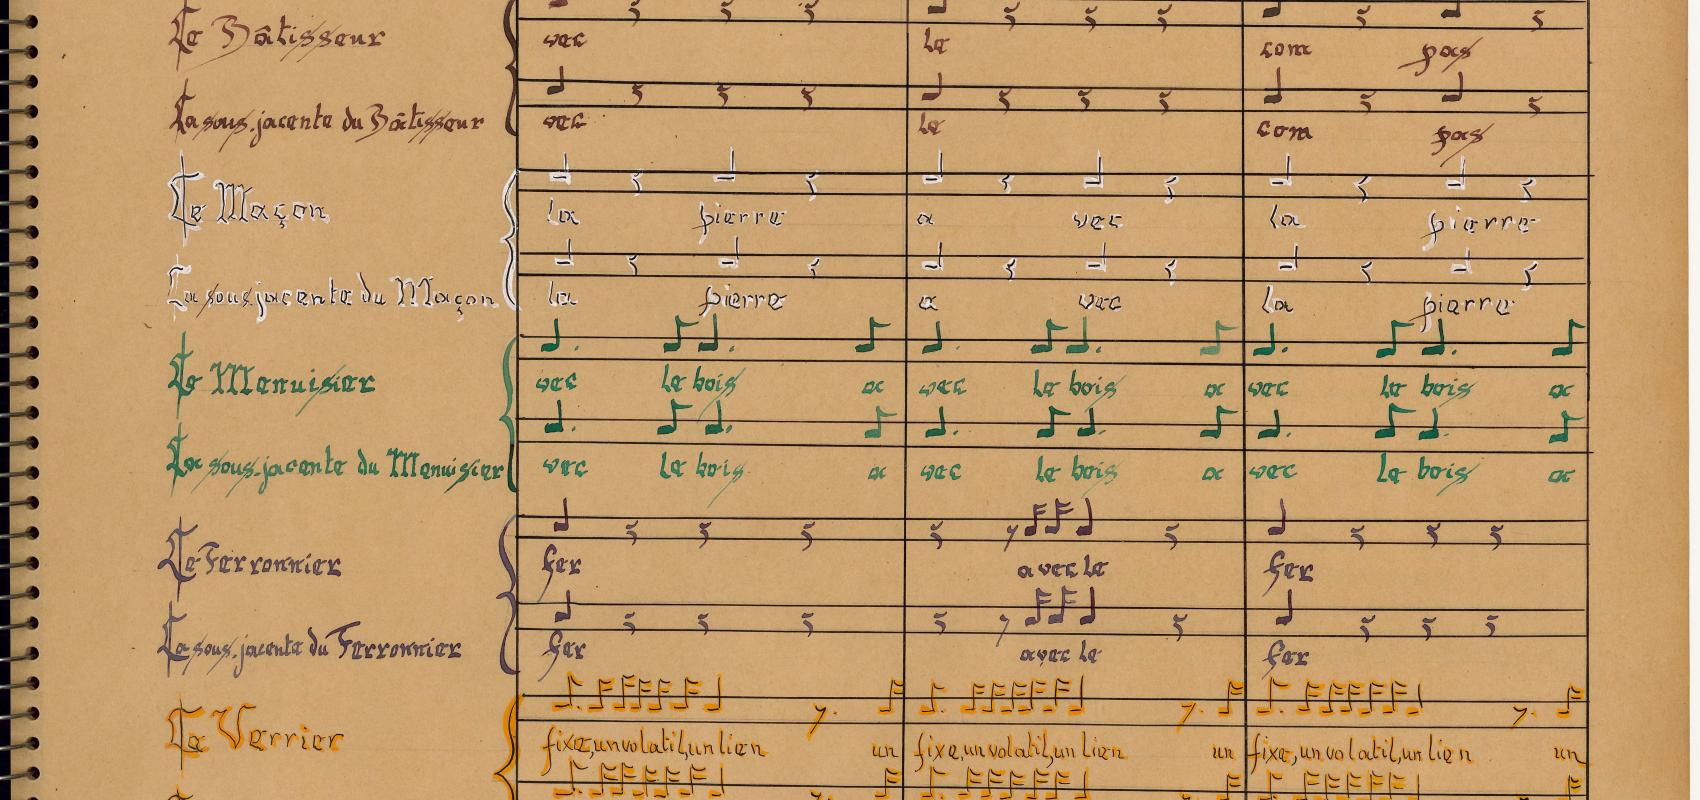 Le Bâtisseur
vec le com pas
La sous-jacente du Bâtisseur
vec le com pas
Le Maçon
la pierre a vec la pierre
La sous-jacente du Maçon
la pierre a vec la pierre
Le Menuisier
vec le bois a vec le bois a vec le bois a
La sous-jacente du Menuisier
vec le bois a vec le bois a vec le bois a
Le Ferronnier
fer avec le fer
La sous-jacente du Ferronnier
fer avec le fer
Le Verrier
fixe, un volatil, un lien un fixe, un volatil, un lien un fixe, un volatil, un lien un